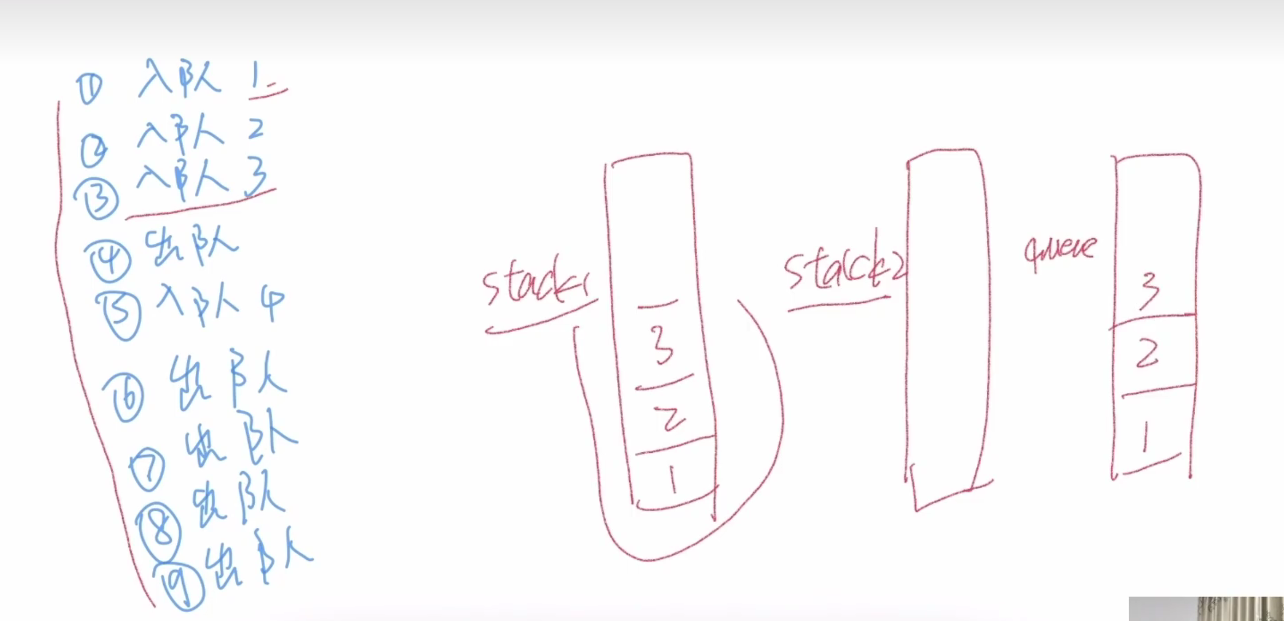 ① 入队 1
② 入队 2
③ 入队 3
④ 出队
⑤ 入队 4
⑥ 出队
⑦ 出队
⑧ 出队
⑨ 出队
stack1
3
2
1
stack2
queue
3
2
1